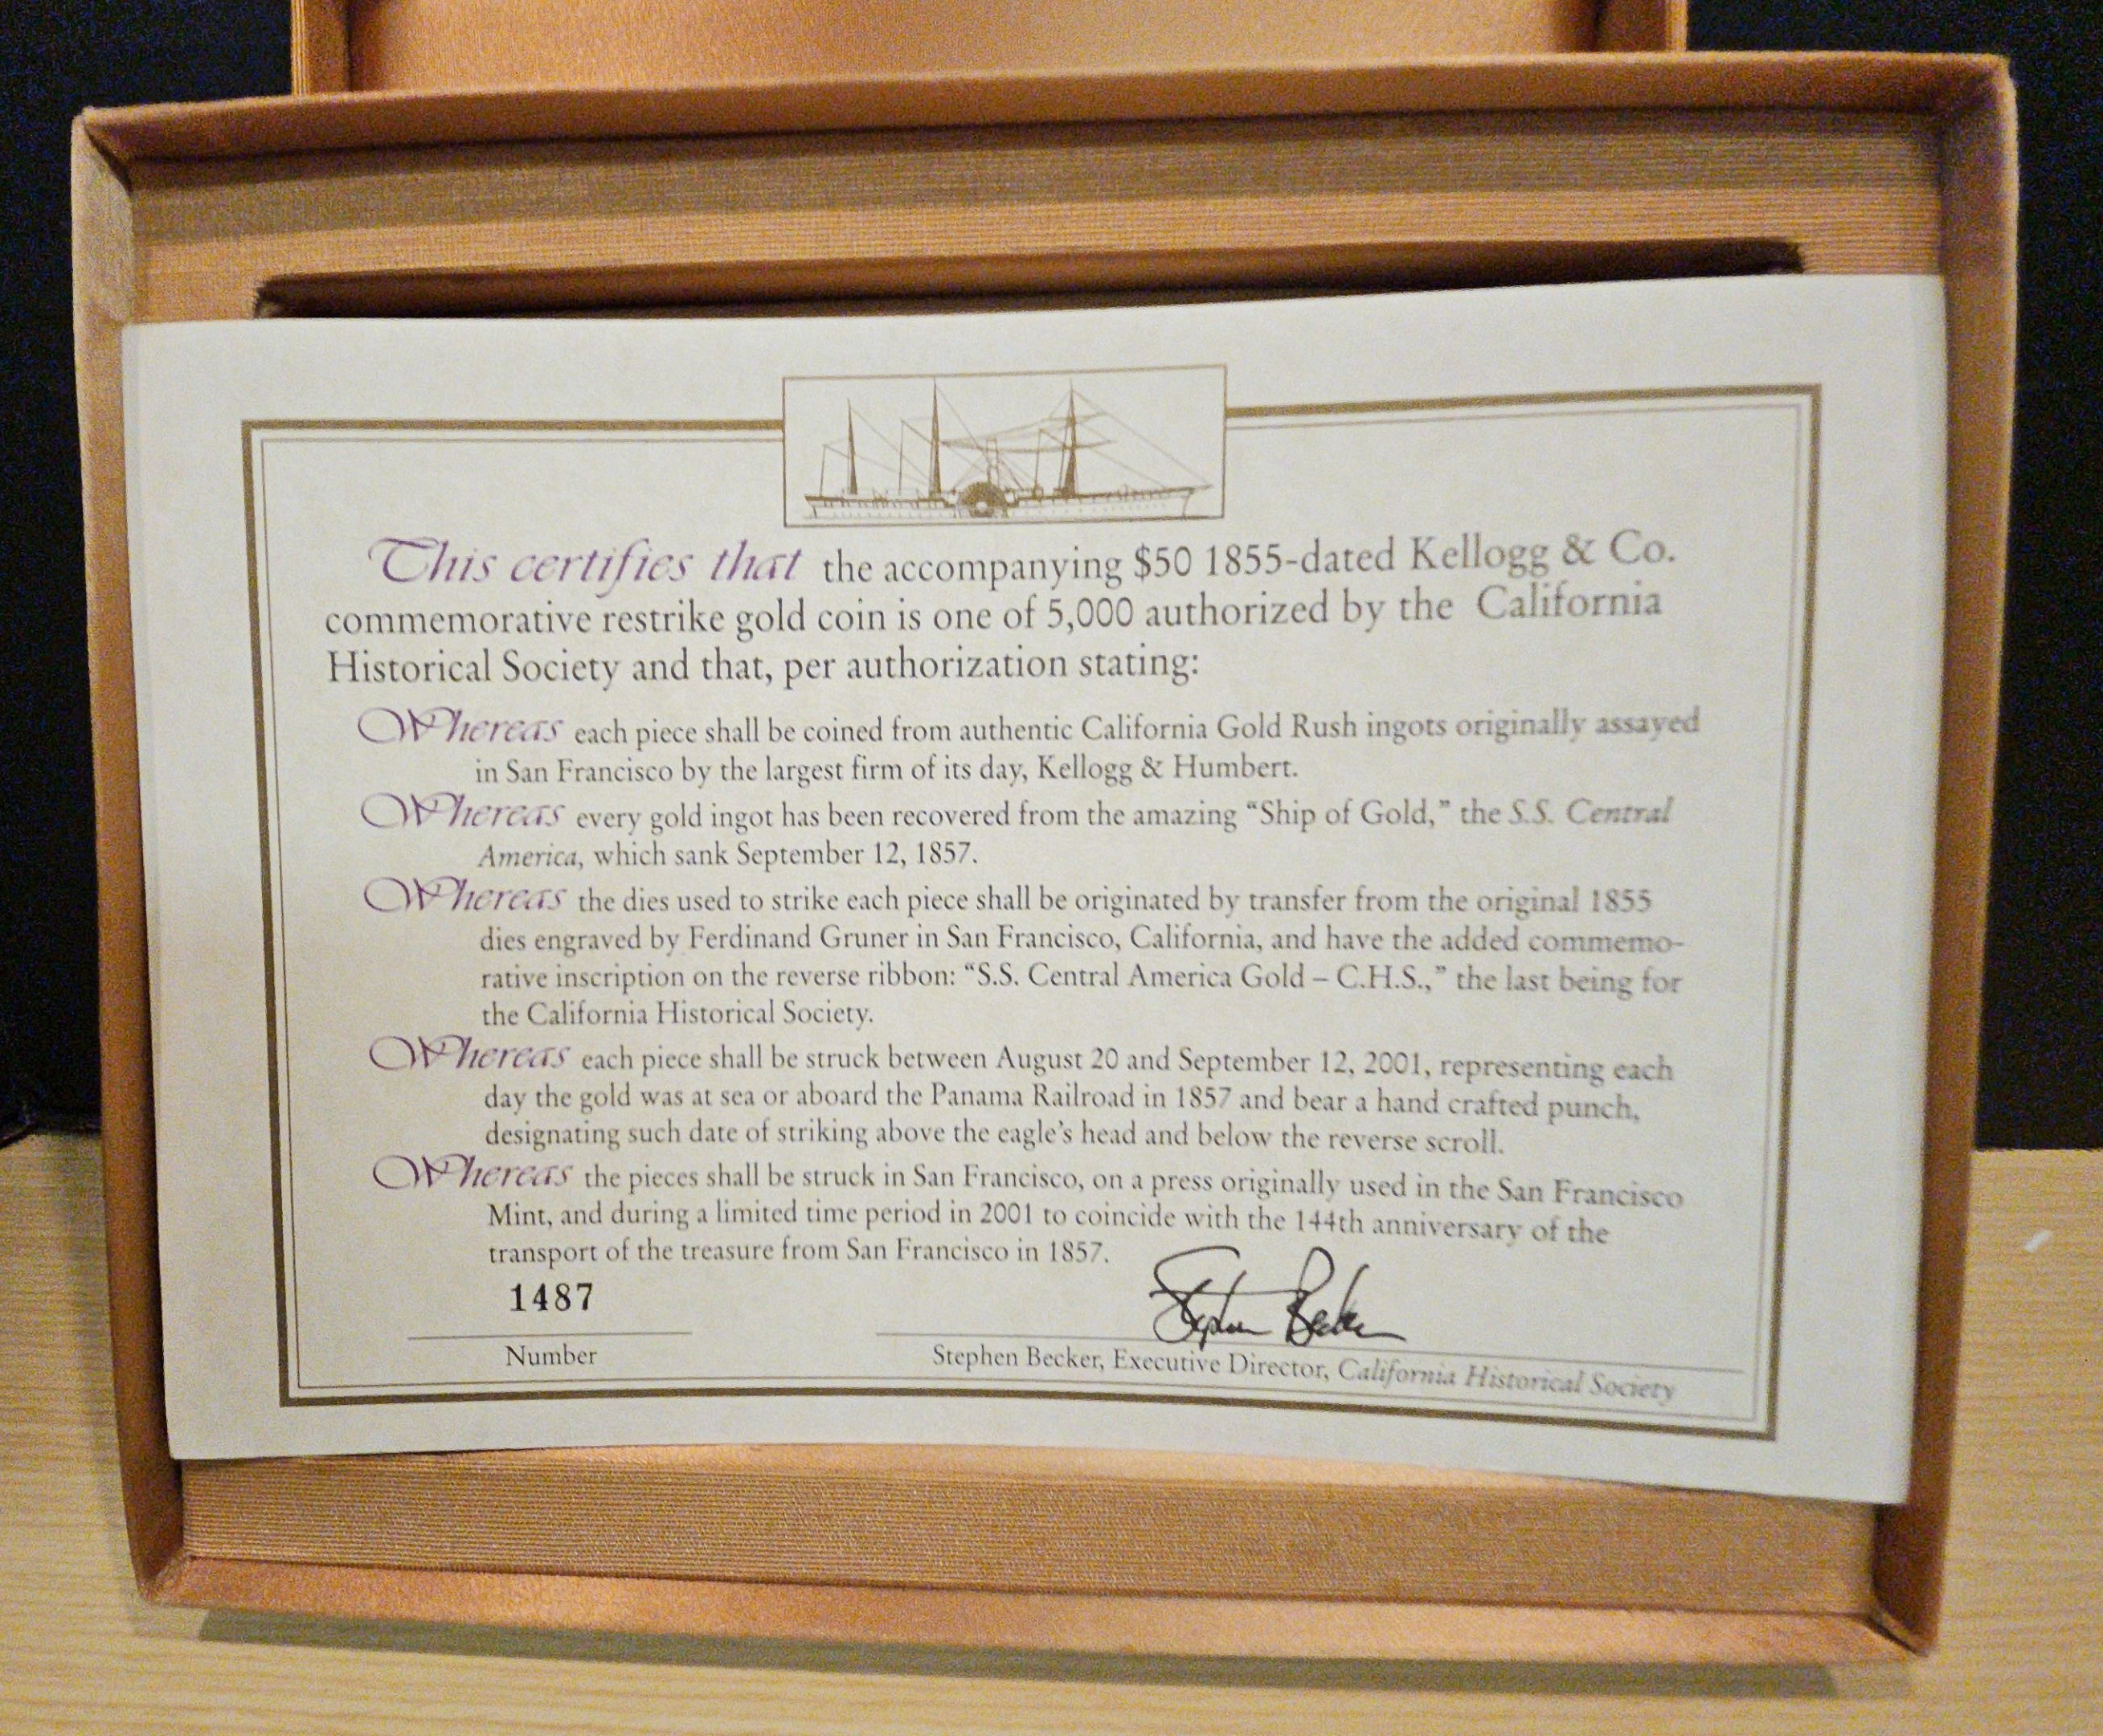 This certifies that the accompanying $50 1855-dated Kellogg & Co.
commemorative restrike gold coin is one of 5,000 authorized by the California
Historical Society and that, per authorization stating:
Whereas each piece shall be coined from authentic California Gold Rush ingots originally assayed
in San Francisco by the largest firm of its day, Kellogg & Humbert.
Whereas every gold ingot has been recovered from the amazing “Ship of Gold,” the S.S. Central
America, which sank September 12, 1857.
Whereas the dies used to strike each piece shall be originated by transfer from the original 1855
dies engraved by Ferdinand Gruner in San Francisco, California, and have the added commemo-
rative inscription on the reverse ribbon: “S.S. Central America Gold – C.H.S.,” the last being for
the California Historical Society.
Whereas each piece shall be struck between August 20 and September 12, 2001, representing each
day the gold was at sea or aboard the Panama Railroad in 1857 and bear a hand crafted punch,
designating such date of striking above the eagle’s head and below the reverse scroll.
Whereas the pieces shall be struck in San Francisco, on a press originally used in the San Francisco
Mint, and during a limited time period in 2001 to coincide with the 144th anniversary of the
transport of the treasure from San Francisco in 1857.
1487
Stephen Becker
Number
Stephen Becker, Executive Director, California Historical Society